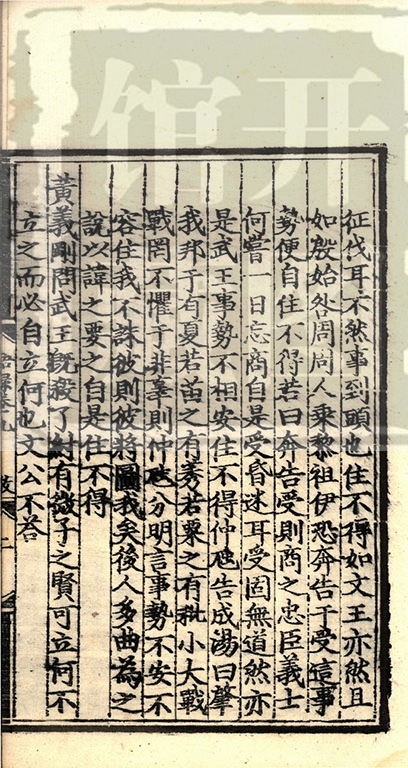 征伐耳不然事到頭也住不得如文王亦然且
如殷始咎周周人乘黎祖伊恐奔告于受這事
勢便自住不得若曰奔告受則商之忠臣義士
何嘗一日忘商自是受昏迷耳受固無道然亦
是武王事勢不相安住不得仲虺告成湯曰肇
我邦于有夏若苗之有莠若粟之有秕小大戰
戰罔不懼于非辜則仲虺分明言事勢不安不
容住我不誅彼則彼將圖我矣後人多曲為之
說以諱之要之自是住不得
黃義剛問武王既殺了紂有微子之賢可立何不
立之而必自立何也文公不答